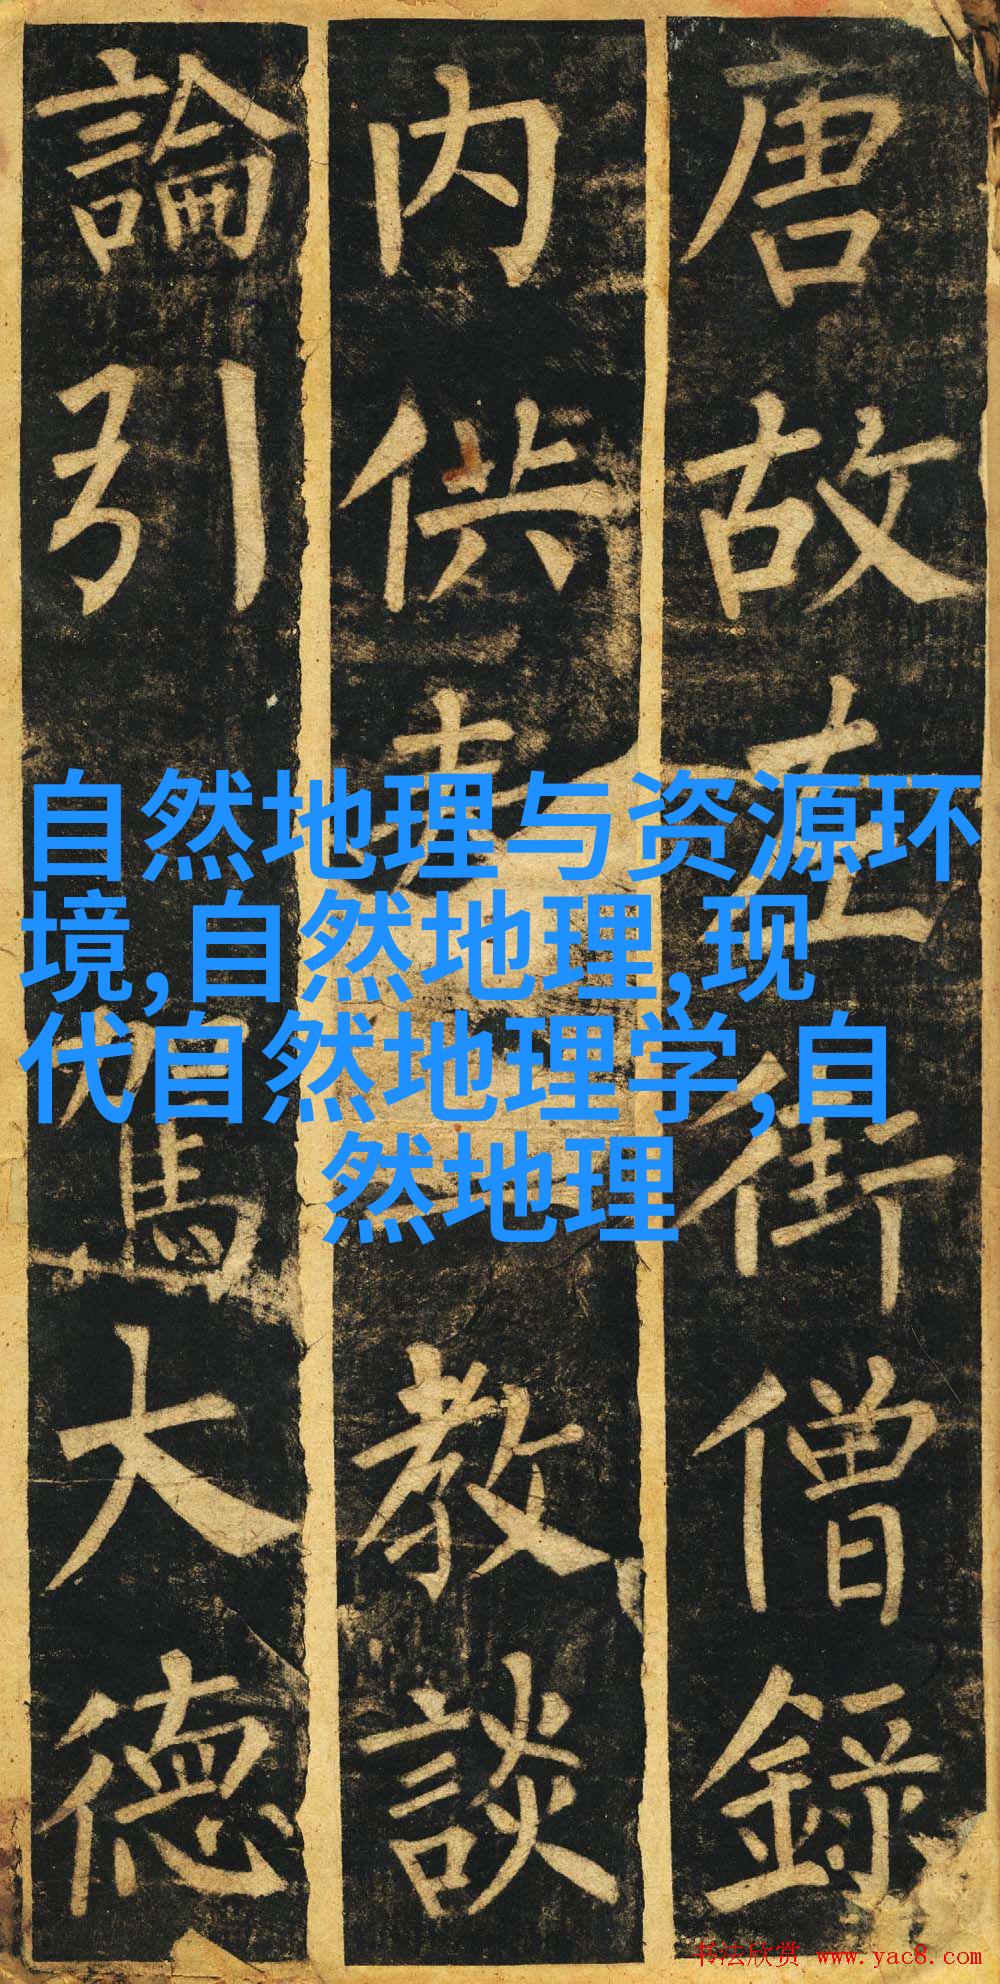 唐故左街僧錄
内供教談
論引駕大德
自然地理与资源环
境,自然地理,现
代自然地理学,自
然地理
书法欣赏 www.yac8.com